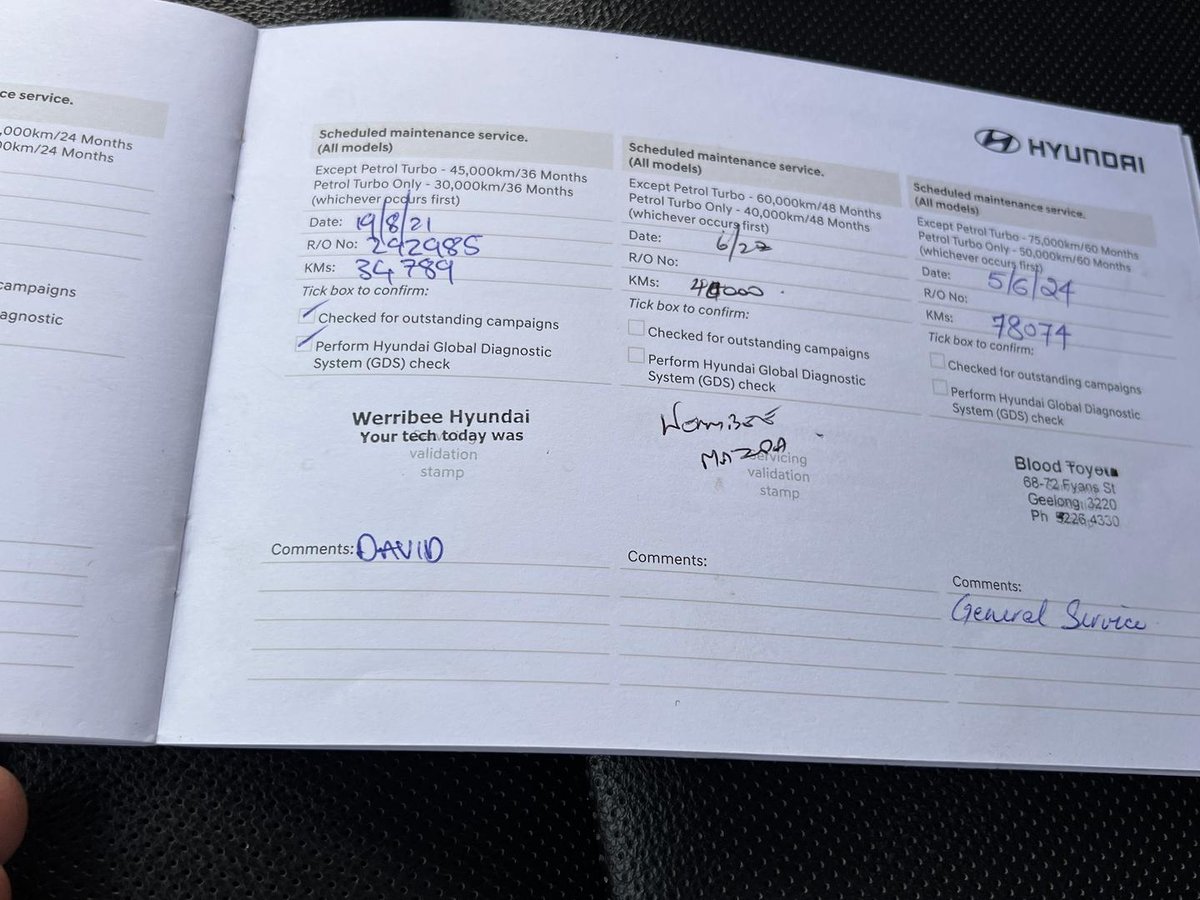 ce service.
,000km/24 Months
0km/24 Months
campaigns
agnostic
Scheduled maintenance service.
(All models)
Except Petrol Turbo - 45,000km/36 Months
Petrol Turbo Only - 30,000km/36 Months
(whichever occurs first)
Date: 19/8/21
R/O No: 292985
KMs: 34789
Tick box to confirm:
Checked for outstanding campaigns
Perform Hyundai Global Diagnostic
System (GDS) check
Werribee Hyundai
Your tech today was
Servicing
validation
stamp
Comments: DAVID
Scheduled maintenance service.
(All models)
Except Petrol Turbo - 60,000km/48 Months
Petrol Turbo Only - 40,000km/48 Months
(whichever occurs first)
Date:
R/O No:
KMs:
Tick box to confirm:
Checked for outstanding campaigns
Perform Hyundai Global Diagnostic
System (GDS) check
WERRIBEE
MAZDA
Servicing
validation
stamp
Comments:
HYUNDAI
Scheduled maintenance service.
(All models)
Except Petrol Turbo - 75,000km/60 Months
Petrol Turbo Only - 50,000km/60 Months
(whichever occurs first)
Date: 5/6/24
R/O No:
KMs: 78074
Tick box to confirm:
Checked for outstanding campaigns
Perform Hyundai Global Diagnostic
System (GDS) check
Blood Toyota
68-72 Fyans St
Geelong 3220
Ph 5226 4330
Comments:
General Service